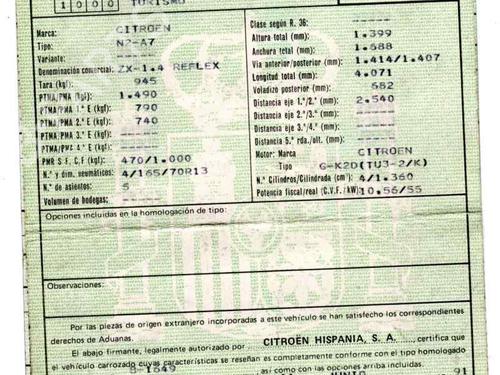 1 0 0 0 TURISMO
Marca: CITROEN
Tipo: N2-A7
Variante: -----
Denominación comercial: ZX-1.4 REFLEX
Tara (kgf): 945
PTMA/PMA (kgf): 1.490
PTMA/PMA 1.º E (kgf): 790
PTMA/PMA 2.º E (kgf): 740
PTMA/PMA 3.º E (kgf): -----
PTMA/PMA 4.º E (kgf): -----
PMR S.F. C.F (kgf): 470/1.000
N.º y dim. neumáticos: 4/165/70R13
N.º de asientos: 5
Volumen de bodegas: -----
Clase según R. 36: -----
Altura total (mm): 1.399
Anchura total (mm): 1.688
Via anterior/posterior (mm): 1.414/1.407
Longitud total (mm): 4.071
Voladizo posterior (mm): 682
Distancia eje 1.º/2.º (mm): 2.540
Distancia eje 2.º/3.º (mm): -----
Distancia eje 3.º/4.º (mm): -----
Distancia 5.ª rda./alt. (mm): -----
Motor: Marca CITROEN
Tipo G-K2D(TU3-2/K)
N.º Cilindros/Cilindrada (cm³): 4/1.360
Potencia fiscal/real (C.V.F./kW): 10.56/55
Opciones incluidas en la homologación de tipo:
Observaciones:
Por las piezas de origen extranjero incorporadas a este vehículo se han satisfecho los correspondientes
derechos de Aduanas.
El abajo firmante, legalmente autorizado por CITROËN HISPANIA, S. A. , certifica que
el vehículo carrozado cuyas características se reseñan es completamente conforme con el tipo homologado
B-649 , así como con las opciones arriba incluidas.
JUNIO 91